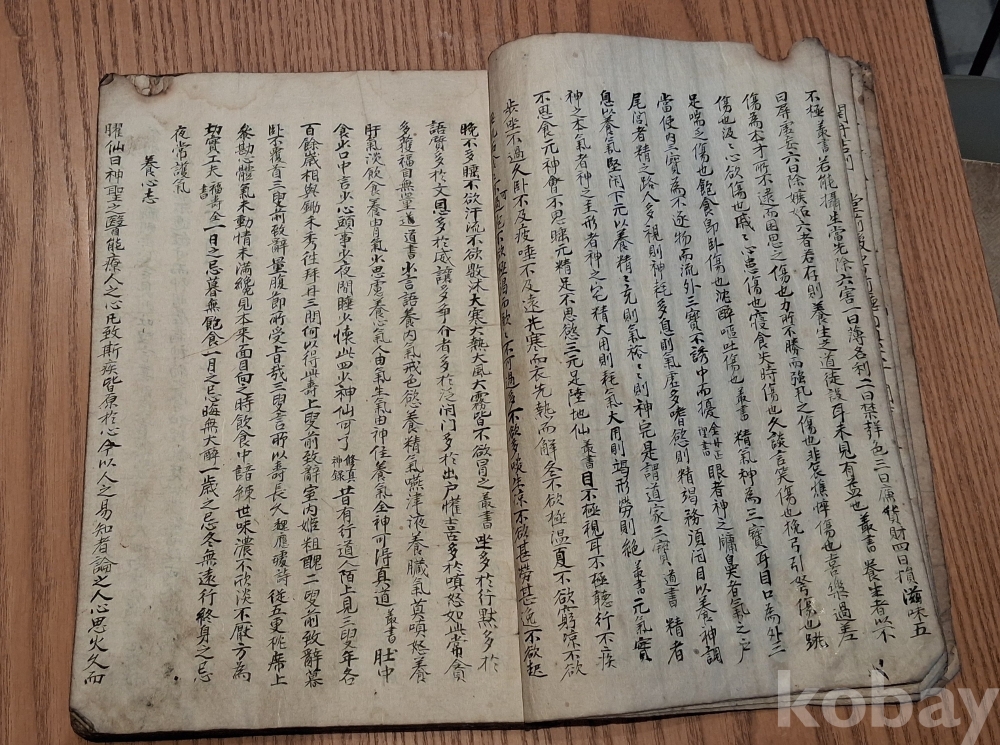 不極叢書若能攝生當先除六害一曰薄名利二曰禁聲色三曰廉貨財四曰損滋味五
曰屏虛妄六曰除嫉妬六者若存則養生之道徒設耳未見有益也叢書養生者以不
傷為本才所不逮而困思之傷也力所不勝而強扎之傷也悲哀憔悴傷也喜樂過差
傷也汲〻心欲傷也戚〻心患傷也寢食失時傷也久談言笑傷也挽弓引弩傷也跳
足喘乏傷也飽食卽卧傷也沈醉嘔吐傷也叢書精氣神為三寶耳目口為外三
當使內三寶為不逐物而流外三寶不誘中而擾金丹正理書眼者神之牖鼻者氣之戶
尾閭者精之路人多視則神耗多息則氣虛多嗜慾則精竭務須閉目以養神調
息以養氣堅閉下元以養精〻充則氣裕〻〻則神完是謂道家三寶道書精者
神之本氣者神之主形者神之宅精大用則耗氣大用則竭形勞則絶叢書元氣實
不思食元神會不思睡元精足不思慾三元足陸地仙叢書目不極視耳不極聽行不疾
步坐不過久卧不及疲唾不及遠先寒而衣先熱而解冬不欲極溫夏不欲窮凉不欲
晚不多睡不欲汗流不欲數沐大寒大熱大風大霧皆不欲冒之叢書坐多於行默多於
語質多於文恩多於威讓多於爭介者多於泛閉门多於出戶懽喜多於嗔怒如此常貪
多獲福自無量道書少言語養內氣戒色慾養精氣嚥津液養臟氣莫嗔怒養
肝氣淡飲食養胃氣少思慮養心氣人由氣生氣由神住養氣全神可得真道叢書肚中
食少口中言少心頭事少夜間睡少懷此四少神仙可了修真神錄昔有行道人陌上見三叟年各
百餘歲相與鋤禾秀往拜再三問何以得此壽上叟前致辭室內姬粗醜二叟前致辭暮
卧不覆首三叟前致辭量腹節所受旨哉三叟言所以壽長久應璩詩從五更枕席上
叅勘心體氣未動情未滿纔見本來面目向之時飲食中諳練世味濃不欣淡不厭方為
切實工夫福壽全書一日之忌暮無飽食一月之忌晦無大醉一歲之忌冬無遠行終身之忌
夜常護氣
養心志
臞仙曰神聖之醫能療人之心凡致斯疾皆原於心今以人之易知者論之人心思火久而
kobay